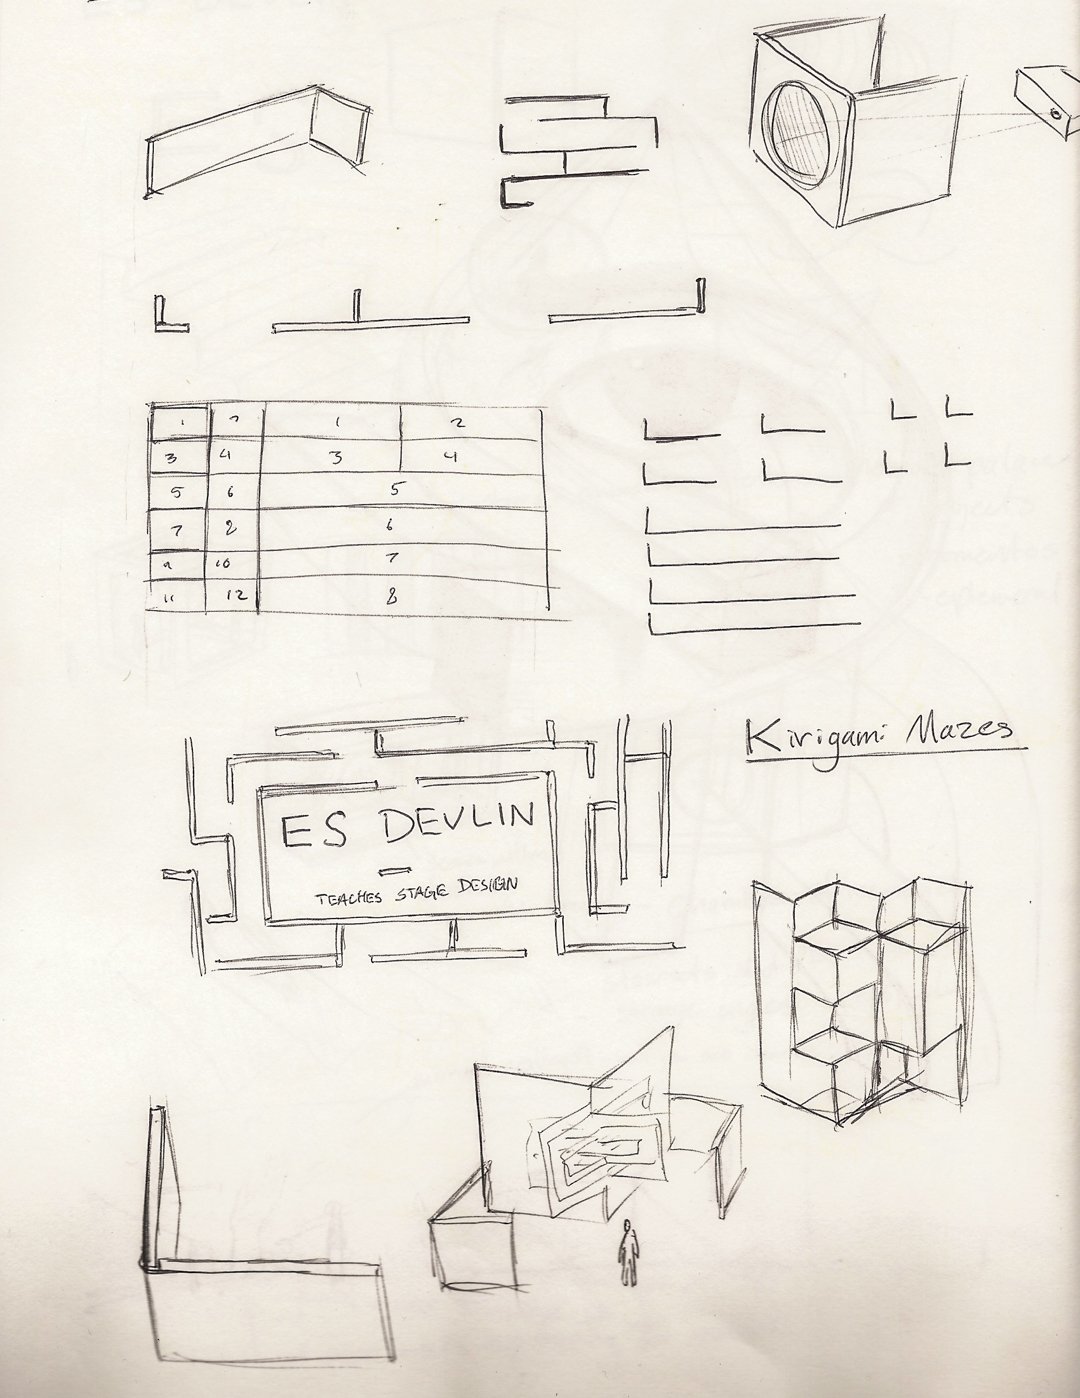 1 2 1 2
3 4 3 4
5 6 5
7 8 6
9 10 7
11 12 8
Kirigami Mazes
ES DEVLIN
TEACHES STAGE DESIGN